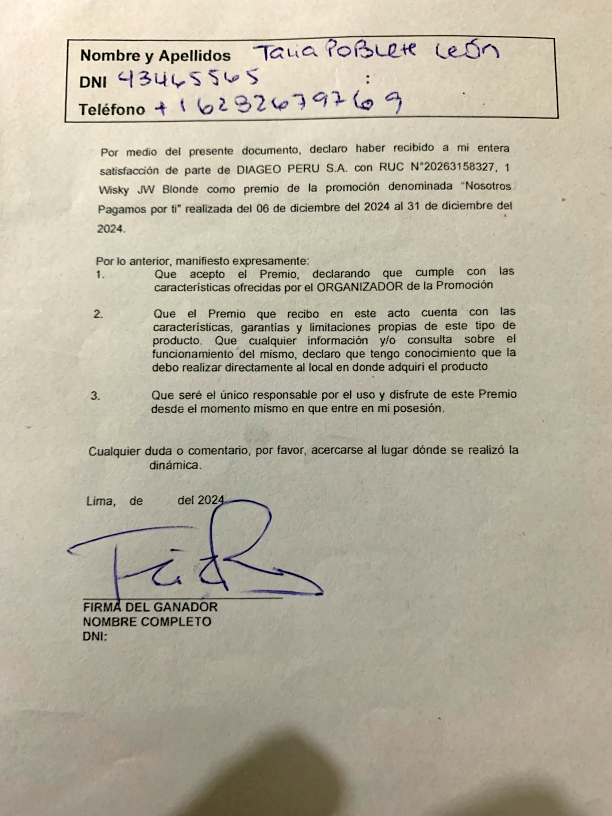 Nombre y Apellidos Talia Poblete León
DNI 43465565 :
Teléfono +16232679769
Por medio del presente documento, declaro haber recibido a mi entera
satisfacción de parte de DIAGEO PERU S.A. con RUC N°20263158327, 1
Wisky JW Blonde como premio de la promoción denominada “Nosotros
Pagamos por ti” realizada del 06 de diciembre del 2024 al 31 de diciembre del
2024.
Por lo anterior, manifiesto expresamente:
1. Que acepto el Premio, declarando que cumple con las
características ofrecidas por el ORGANIZADOR de la Promoción
2. Que el Premio que recibo en este acto cuenta con las
características, garantías y limitaciones propias de este tipo de
producto. Que cualquier información y/o consulta sobre el
funcionamiento del mismo, declaro que tengo conocimiento que la
debo realizar directamente al local en donde adquirí el producto
3. Que seré el único responsable por el uso y disfrute de este Premio
desde el momento mismo en que entre en mi posesión.
Cualquier duda o comentario, por favor, acercarse al lugar dónde se realizó la
dinámica.
Lima, de del 2024
FIRMA DEL GANADOR
NOMBRE COMPLETO
DNI: